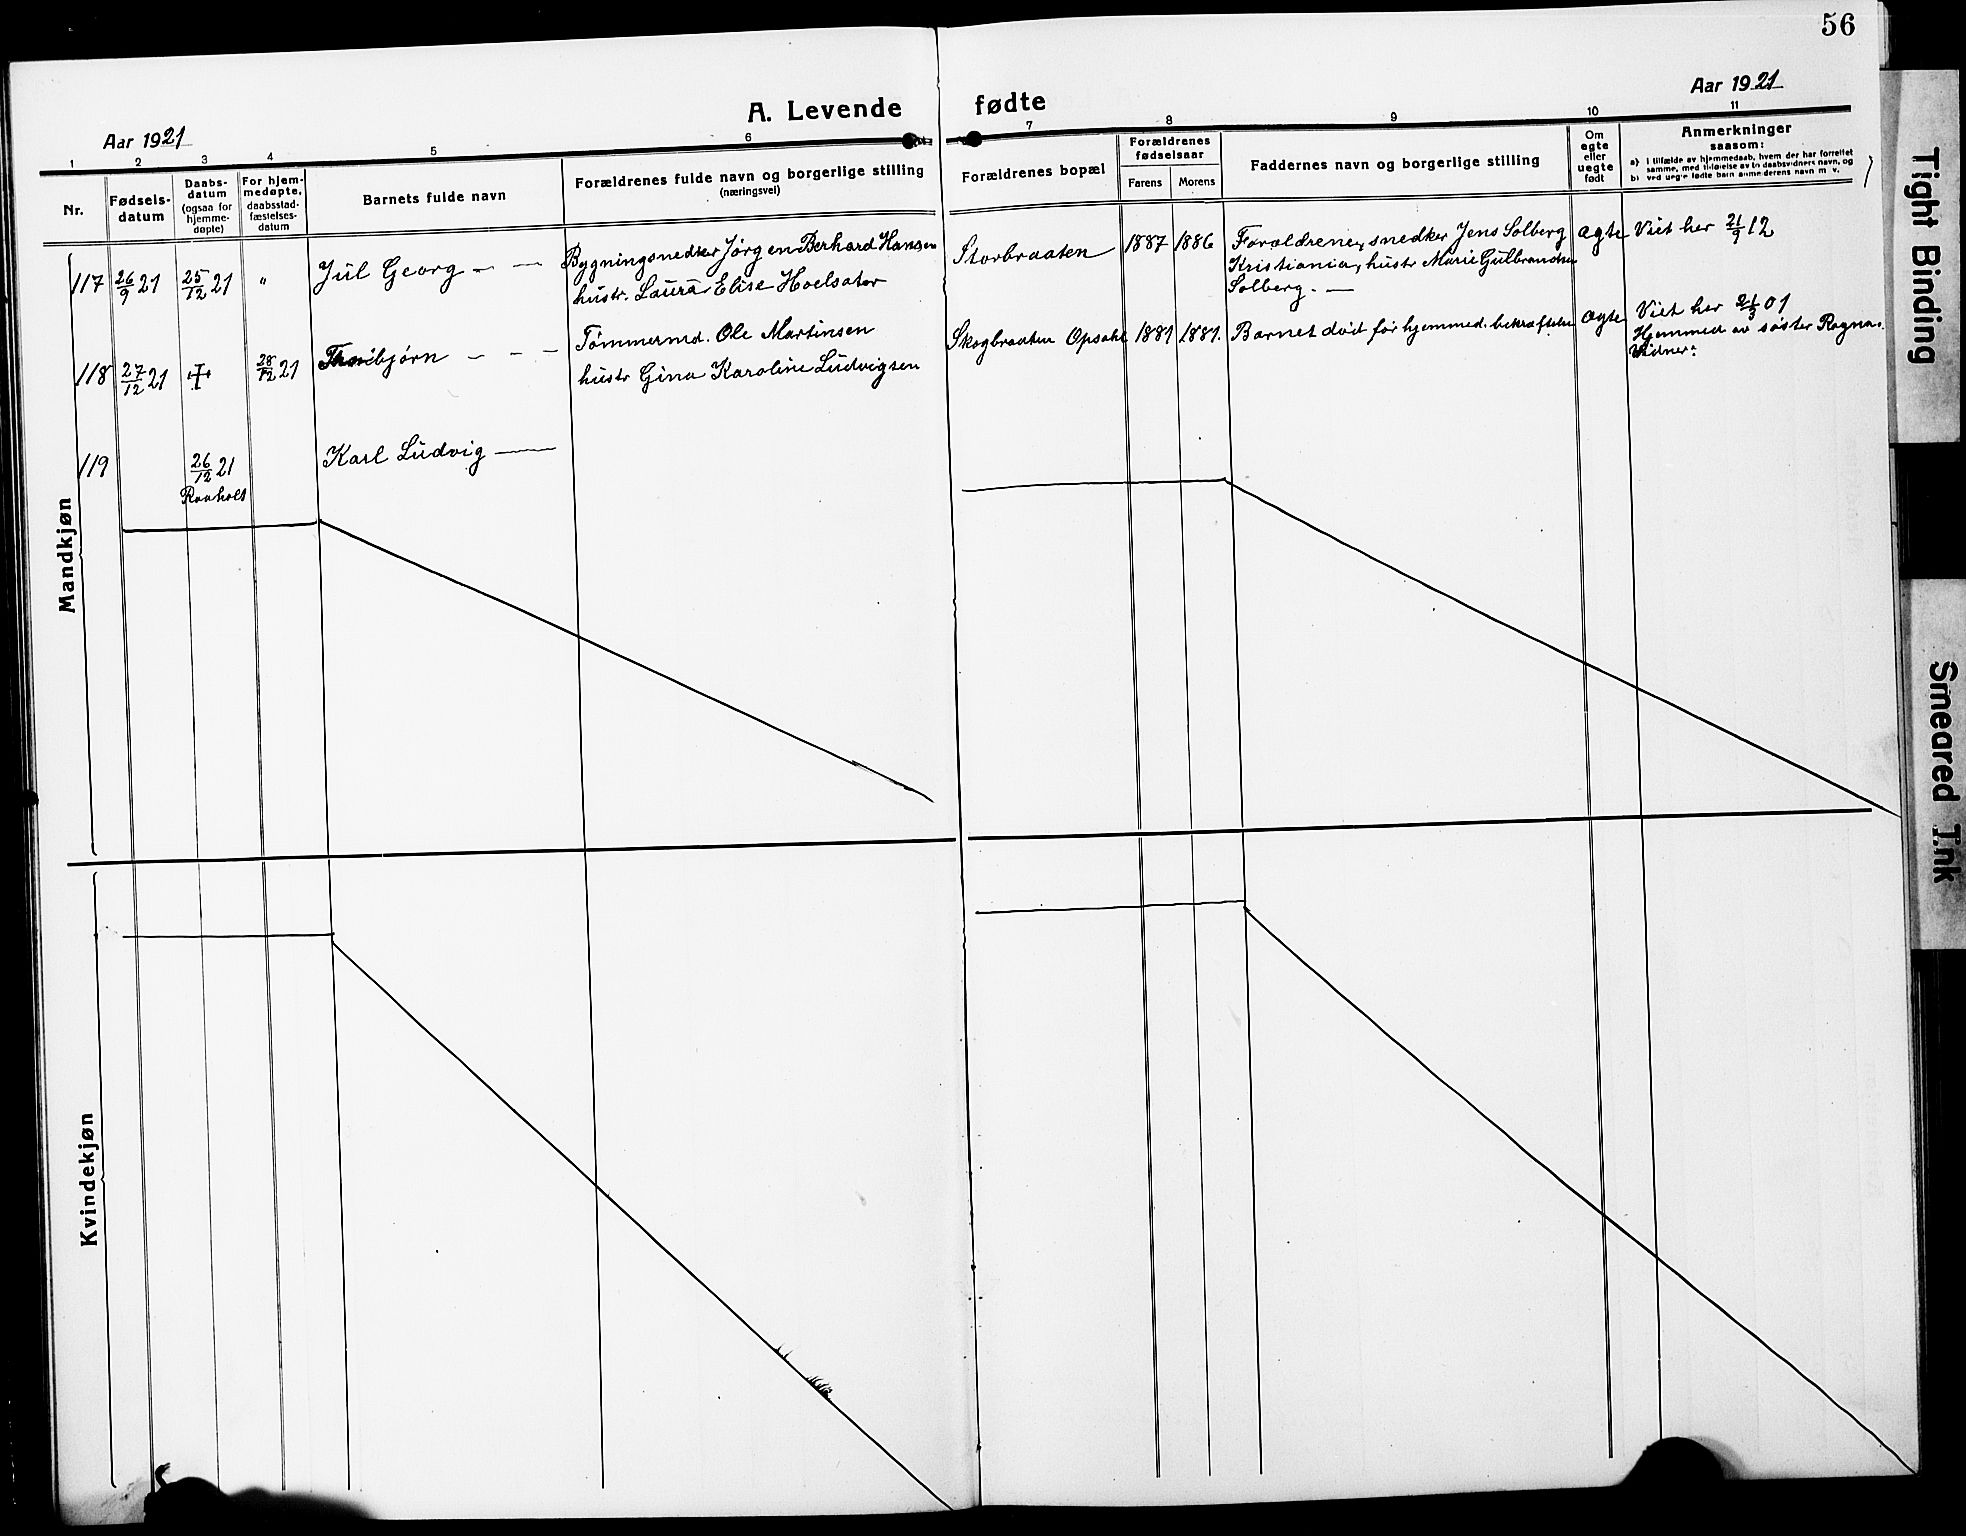 56
A. Levende fødte
Aar 1921
Aar 1921
1 2 3 4 5 6 7 8 9 10 11
Nr.
Fødsels-
datum
Daabs-
datum
(ogsaa for
hjemme-
døpte)
For hjem-
medøpte,
daabsstad-
fæstelses-
datum
Barnets fulde navn
Forældrenes fulde navn og borgerlige stilling
(næringsvei)
Forældrenes bopæl
Forældrenes
fødselsaar
Farens Morens
Faddernes navn og borgerlige stilling
Om
egte
eller
uegte
født
Anmerkninger
saasom:
a) i tilfælde av hjemmedaab, hvem der har forrettet
samme, med tilføielse av to daabsvidners navn, og
b) ved uegte fødte barn anmelderens navn m. v.
Mandkjøn
117 26/9 21 25/12 21 " Jul Georg - —
Bygningsnedker Jørgen Berhard Hansen
hustr. Laura Elise Hoelsæter
Storbraaten 1887 1886
Forældrene, snedker Jens Solberg
Kristiania, hustr Marie Gulbrandsen
Solberg. —
ægte Viet her 21/9 12
118 27/12 21 28/12 21
Tømmermd. Ole Martinsen
hustr Gina Karoline Ludvigsen
Skogbraaten Opsahl 1881 1881.
Barnet død før hjemmed. bekræftelse
ægte Viet her 21/3 01
Hjemmed av søster Ragna.
Vidner:
119 26/12 21 Karl Ludvig —
Raaholt
Kvindekjøn
Tight Binding
Smeared Ink